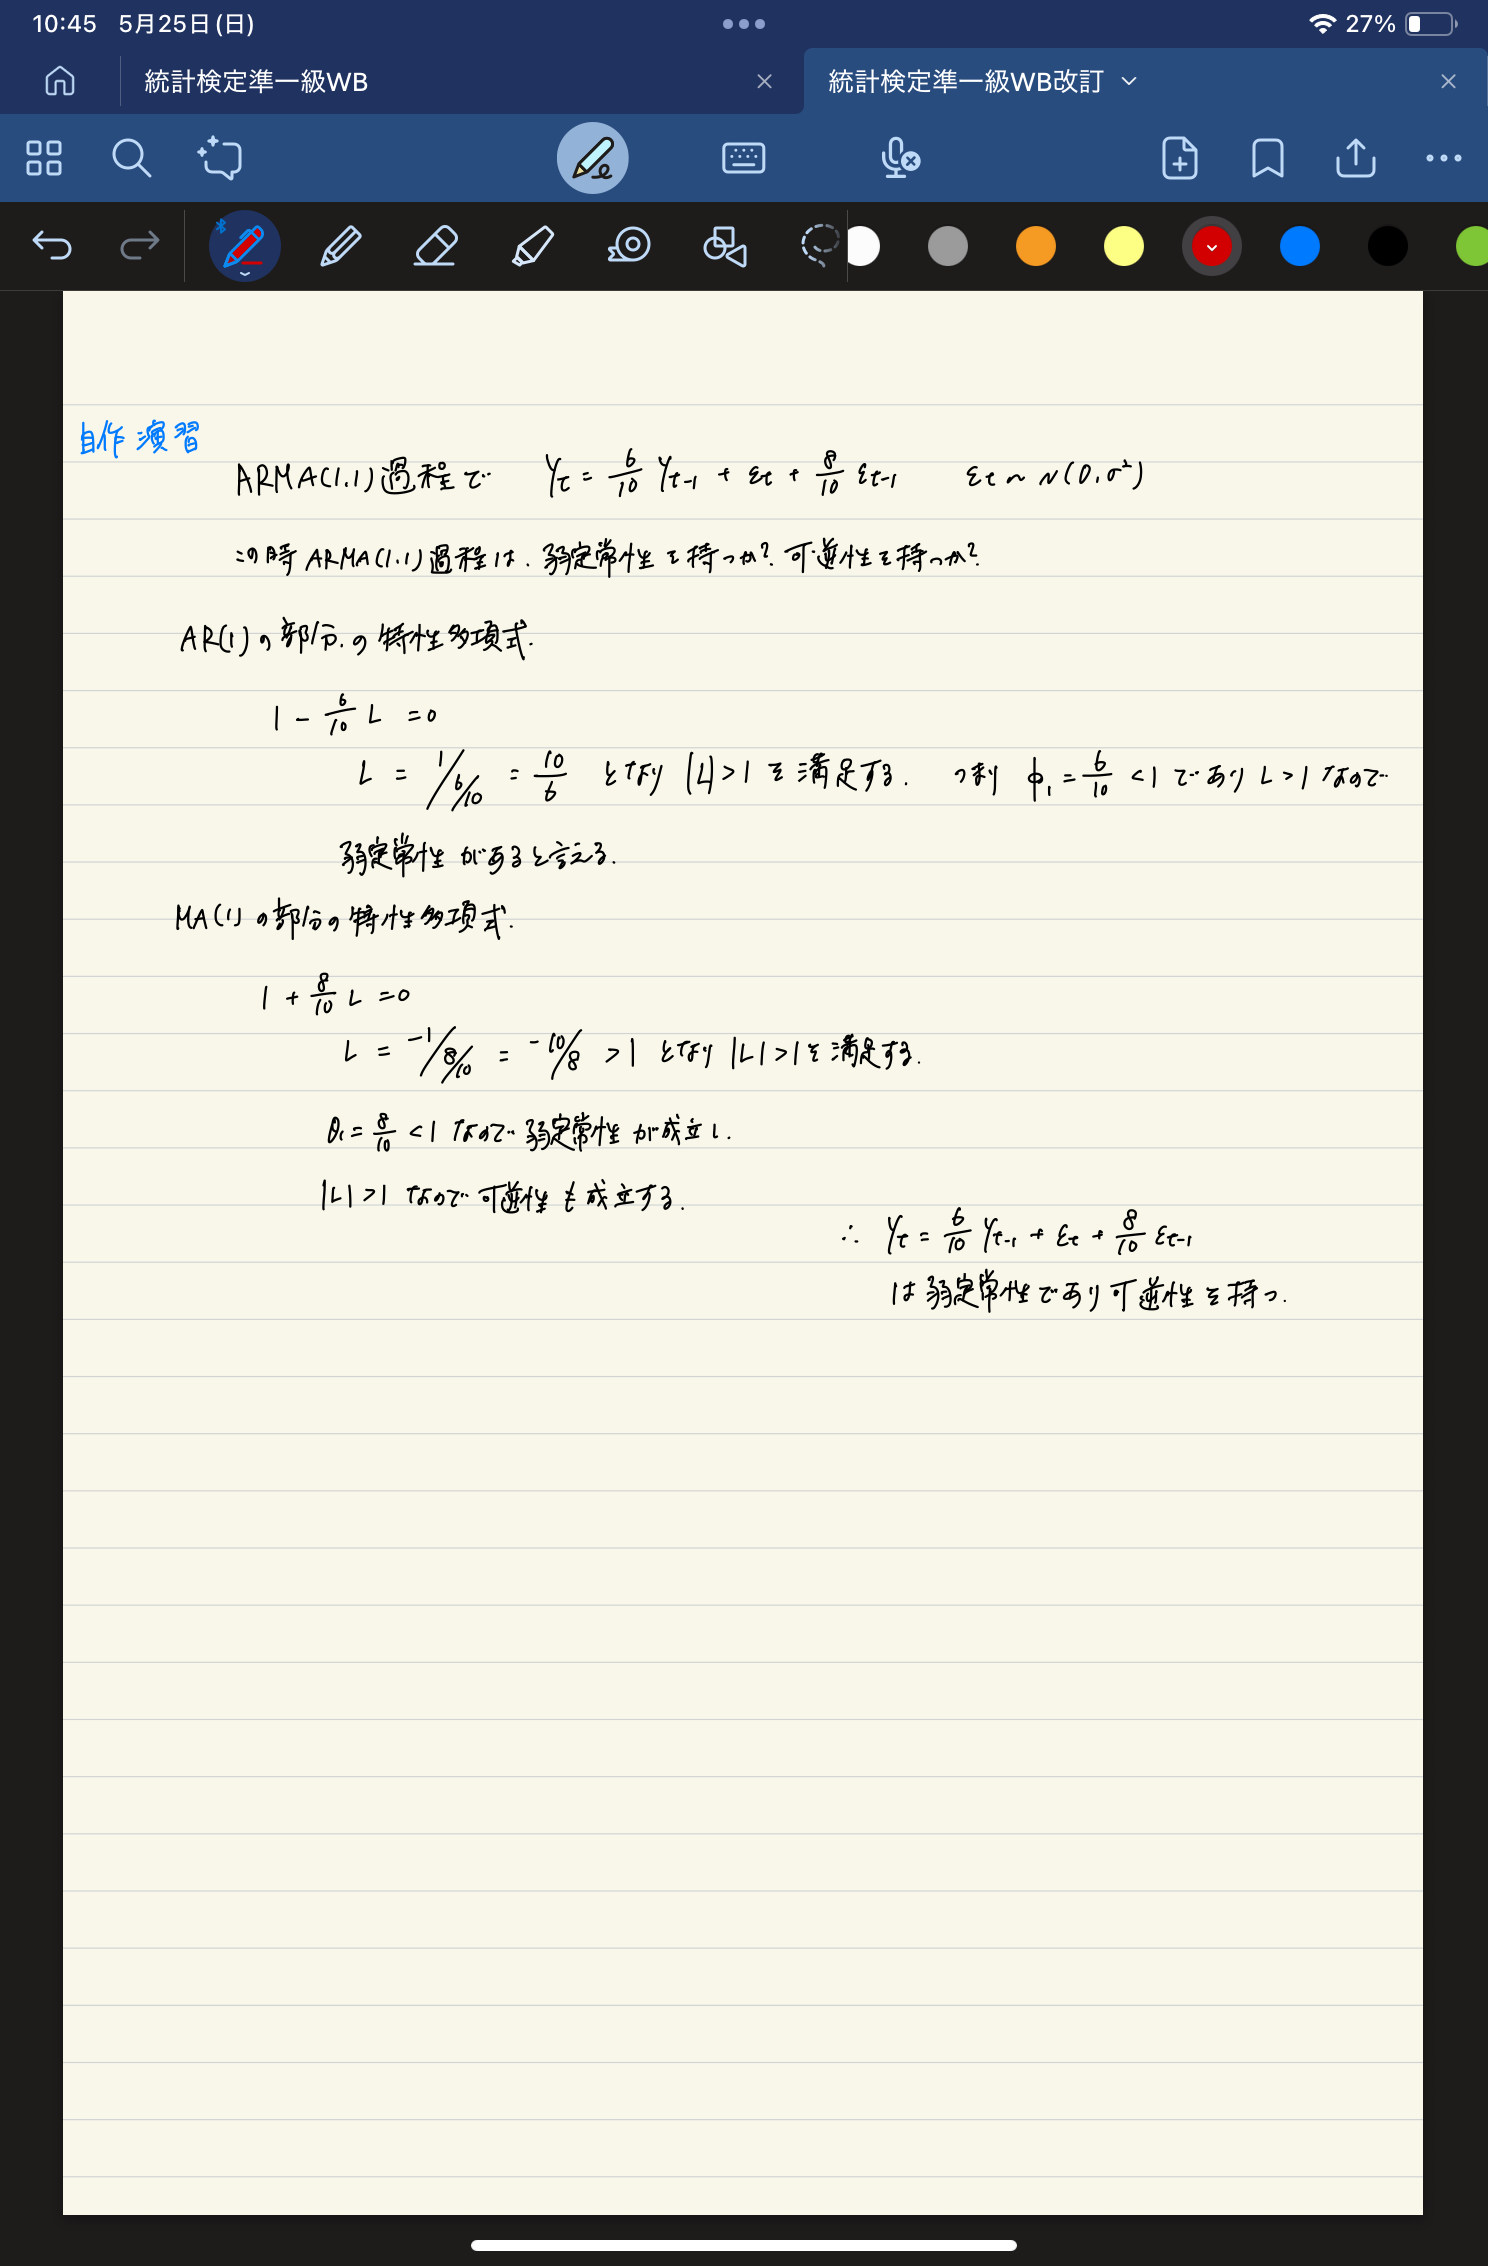 10:45 5月25日(日)
27%
統計検定準一級WB
統計検定準一級WB改訂
自作演習
ARMA(1.1)過程で Yt = 6/10 Yt-1 + εt + 8/10 εt-1 εt ~ N(0,σ²)
この時ARMA(1.1)過程は、弱定常性を持つか?可逆性を持つか?
AR(1)の部分の特性多項式.
1 - 6/10 L = 0
L = 1/6/10 = 10/6 となり |L| > 1 を満足する. つまり φ1 = 6/10 < 1 であり L > 1 なので
弱定常性があると言える.
MA(1)の部分の特性多項式.
1 + 8/10 L = 0
L = -1/8/10 = -10/8 > 1 となり |L| > 1を満足する.
θ1 = 8/10 < 1 なので弱定常性が成立し.
|L| > 1 なので可逆性も成立する.
∴ Yt = 6/10 Yt-1 + εt + 8/10 εt-1
は弱定常性であり可逆性を持つ.